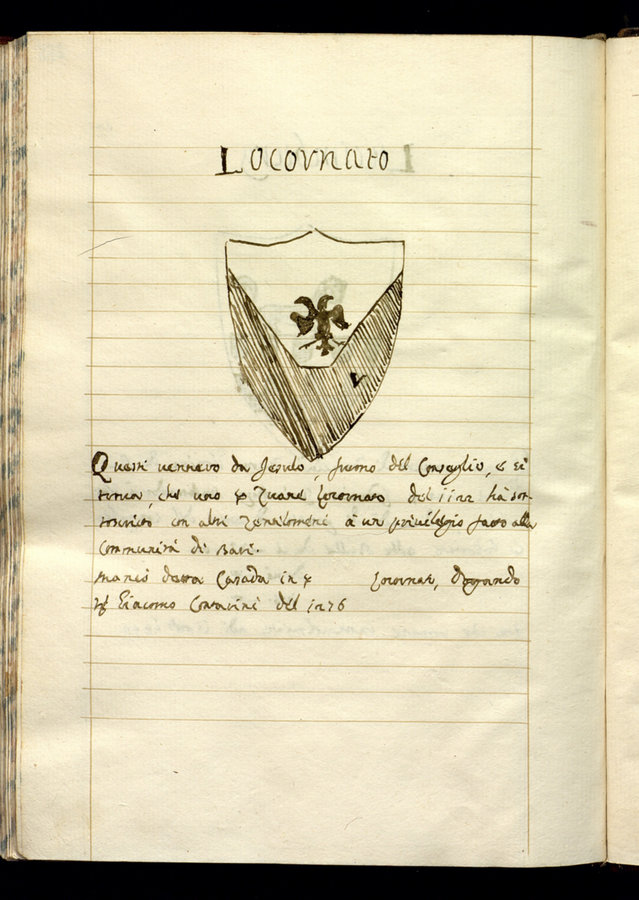 Locovnato
Questi vennero da Jesulo, furono del Conseglio, & si
trova, che uno & Zuane Locovnato del 1122 hà sot
toscritto con altri Zentilomeni à un privilegio fatto alla
Communità di Bari.
Mancò detta Casada in & Locovnato, Dogando
Giacomo Contarini del 1276